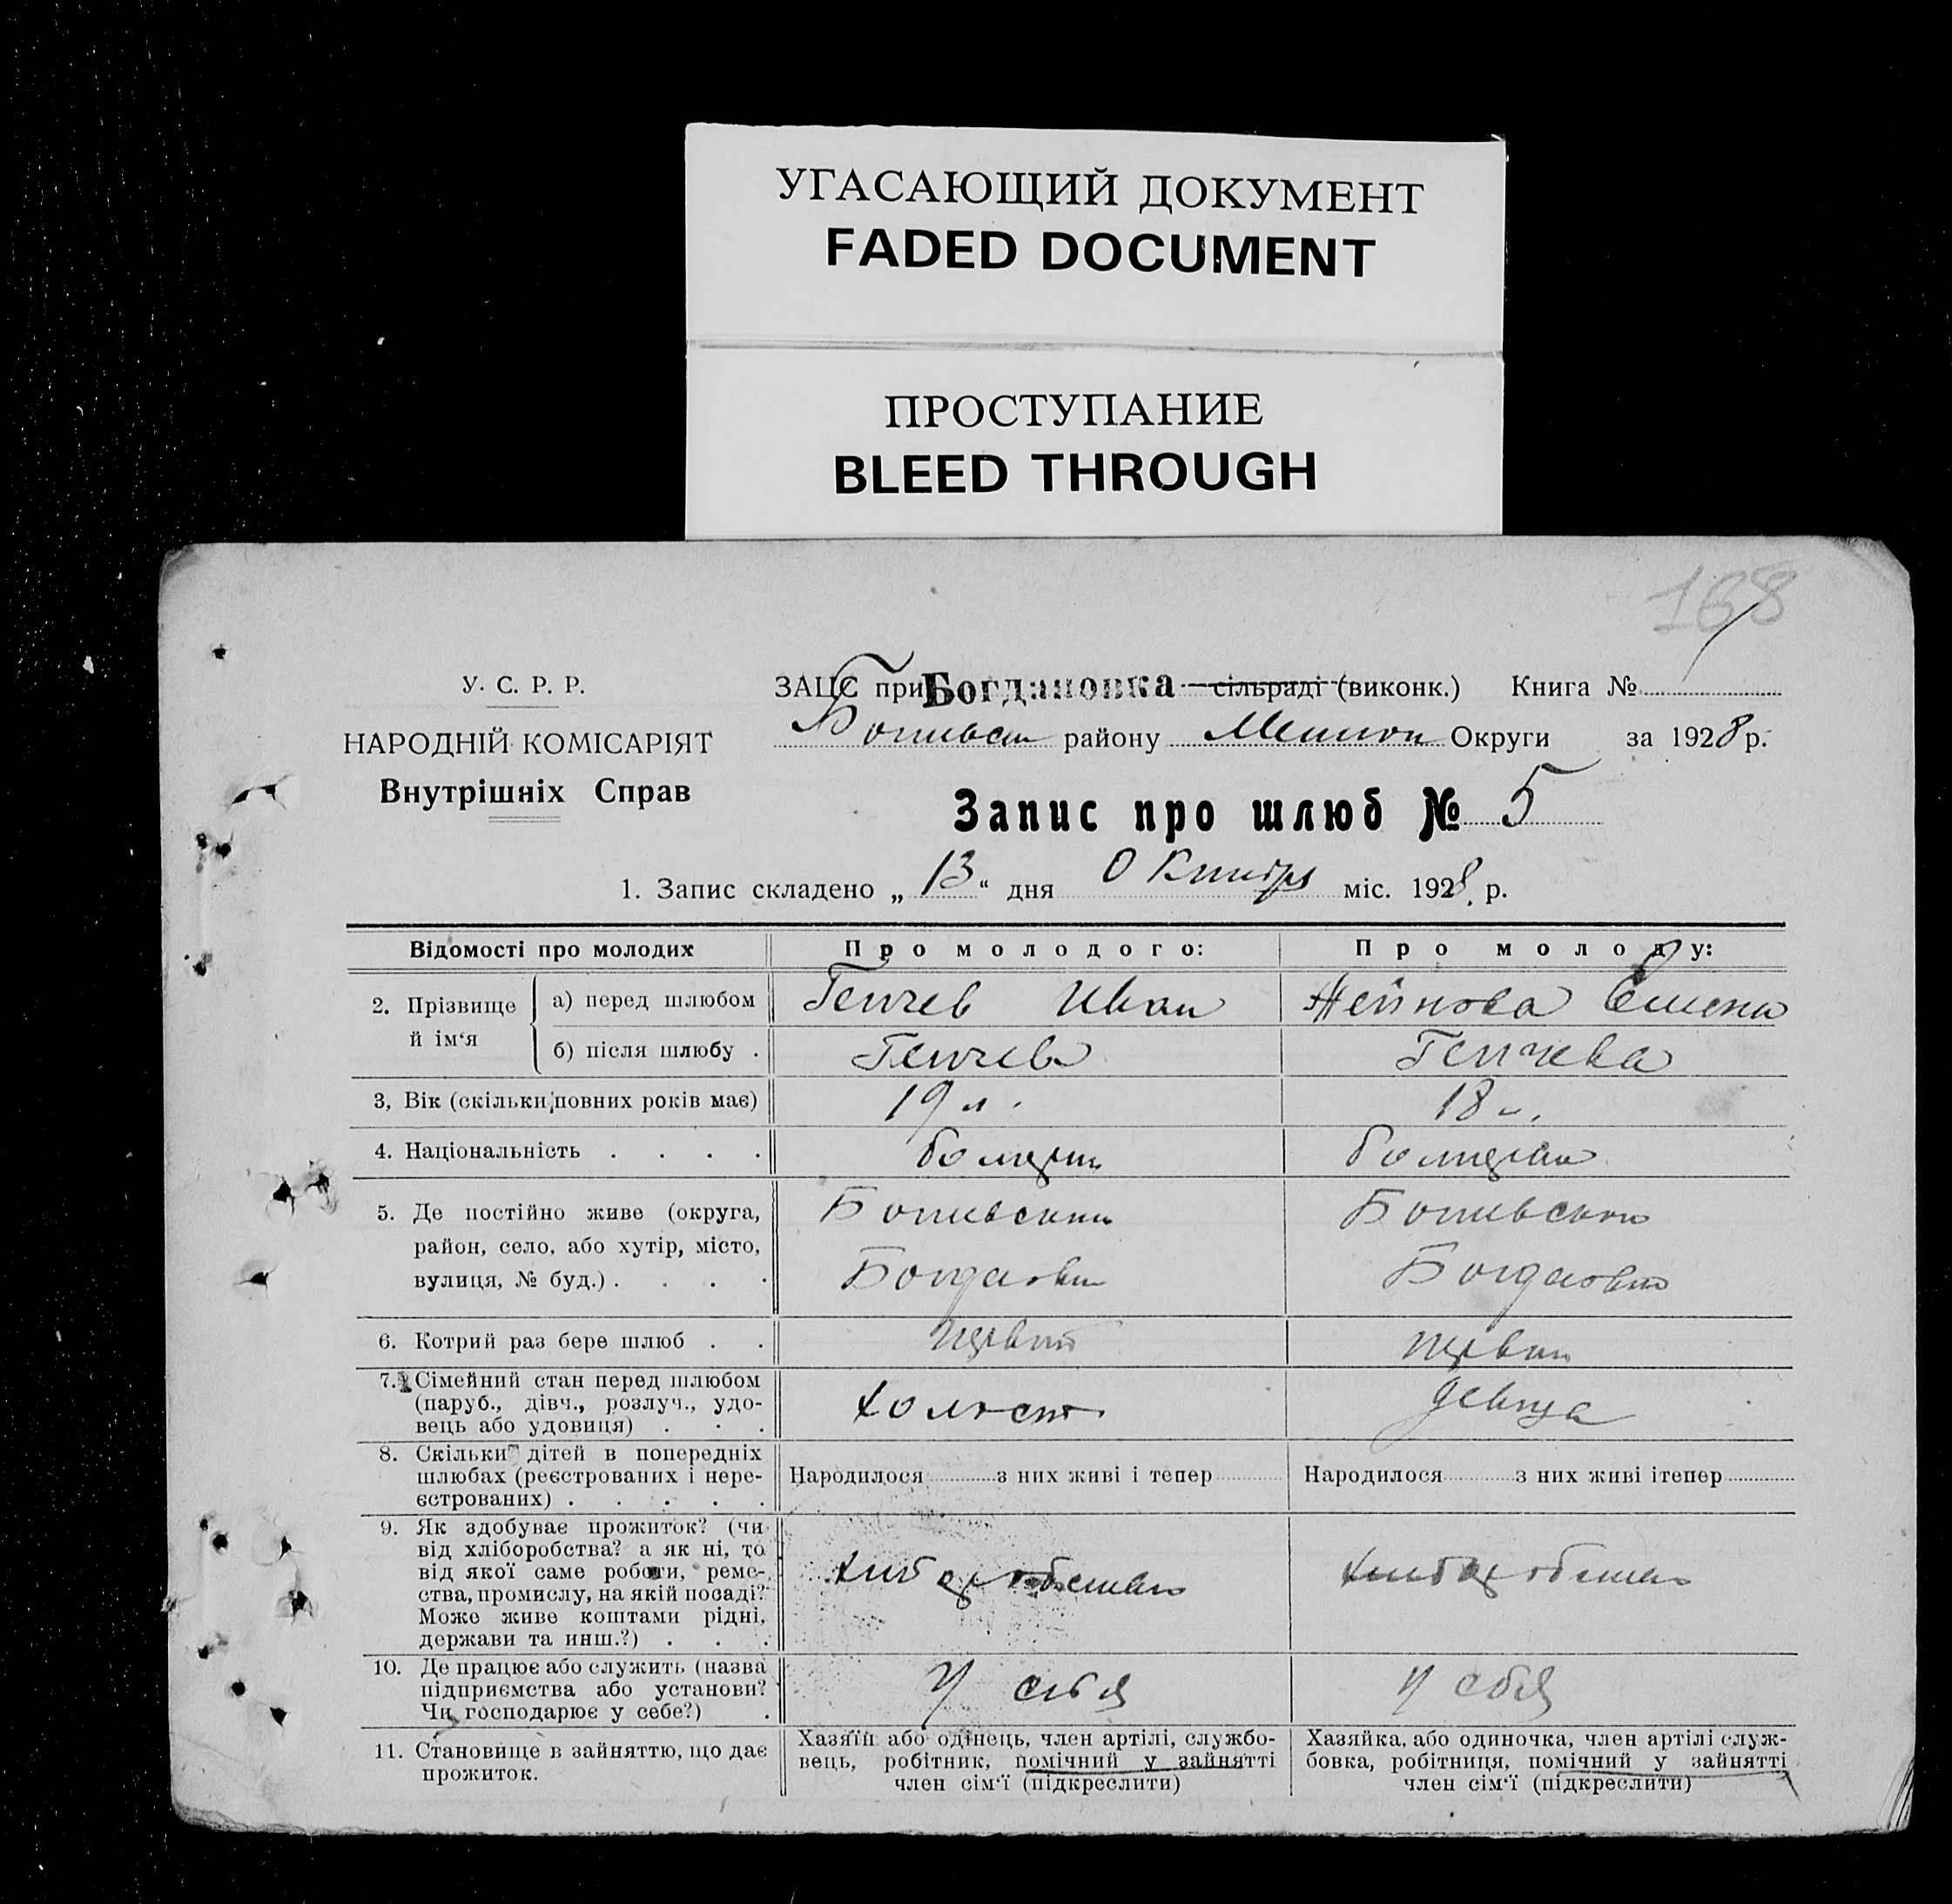 УГАСАЮЩИЙ ДОКУМЕНТ
FADED DOCUMENT
ПРОСТУПАНИЕ
BLEED THROUGH
168
У. С. Р. Р.
НАРОДНІЙ КОМІСАРІЯТ
Внутрішніх Справ
ЗАЦС при Богдановка сільраді (виконк.) Книга №
району Округи за 1928 р.
Запис про шлюб № 5
1. Запис складено „ 13 “ дня Октября міс. 1928 р.
Відомості про молодих Про молодого: Про молоду:
2. Прізвище й ім‘я
а) перед шлюбом Генчев Иван Жейнова Елена
б) після шлюбу . Генчев Генчева
3, Вік (скільки повних років має) 19 л. 18 л.
4. Національність . . . . болгарин болгарка
5. Де постійно живе (округа, Ботиевский Ботиевский
район, село, або хутір, місто,
вулиця, № буд.) . . . . Богдановка Богдановка
6. Котрий раз бере шлюб . . первый первый
7. Сімейний стан перед шлюбом
(паруб., дівч., розлуч., удо-
вець або удовиця) . . . холост девица
8. Скільки дітей в попередніх
шлюбах (реєстрованих і нере-
єстрованих) . . . . .
Народилося з них живі і тепер Народилося з них живі ітепер
9. Як здобуває прожиток? (чи
від хліборобства? а як ні, то
від якої саме роботи, реме-
ства, промислу, на якій посаді?
Може живе коштами рідні,
держави та инш.?) . . .
10. Де працює або служить (назва
підприємства або установи?
Чи господарює у себе?) . у себя у себя
11. Становище в зайняттю, що дає
прожиток.
Хазяїн або одінець, член артілі, службо-
вець, робітник, помічний у зайнятті
член сім‘ї (підкреслити)
Хазяйка, або одиночка, член артілі служ-
бовка, робітниця, помічний у зайнятті
член сім‘ї (підкреслити)